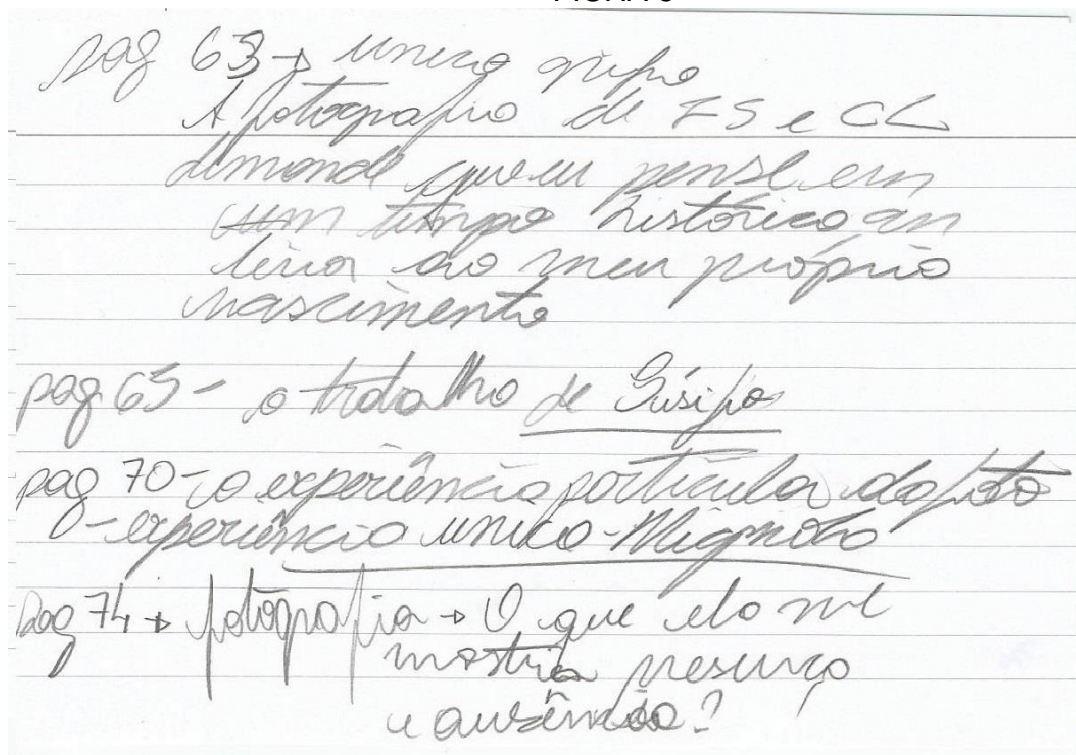 pag 63 → unico grifo
A fotografia de FS e CL
demanda que eu pense em
um tempo histórico an
terior ao meu próprio
nascimento
pag 65 - o trabalho de Sísifo
pag 70 - a experiência particular da foto
- experiência unica - Mignolo
pag 74 → fotografia → O que ela me
mostra presença
e ausência?